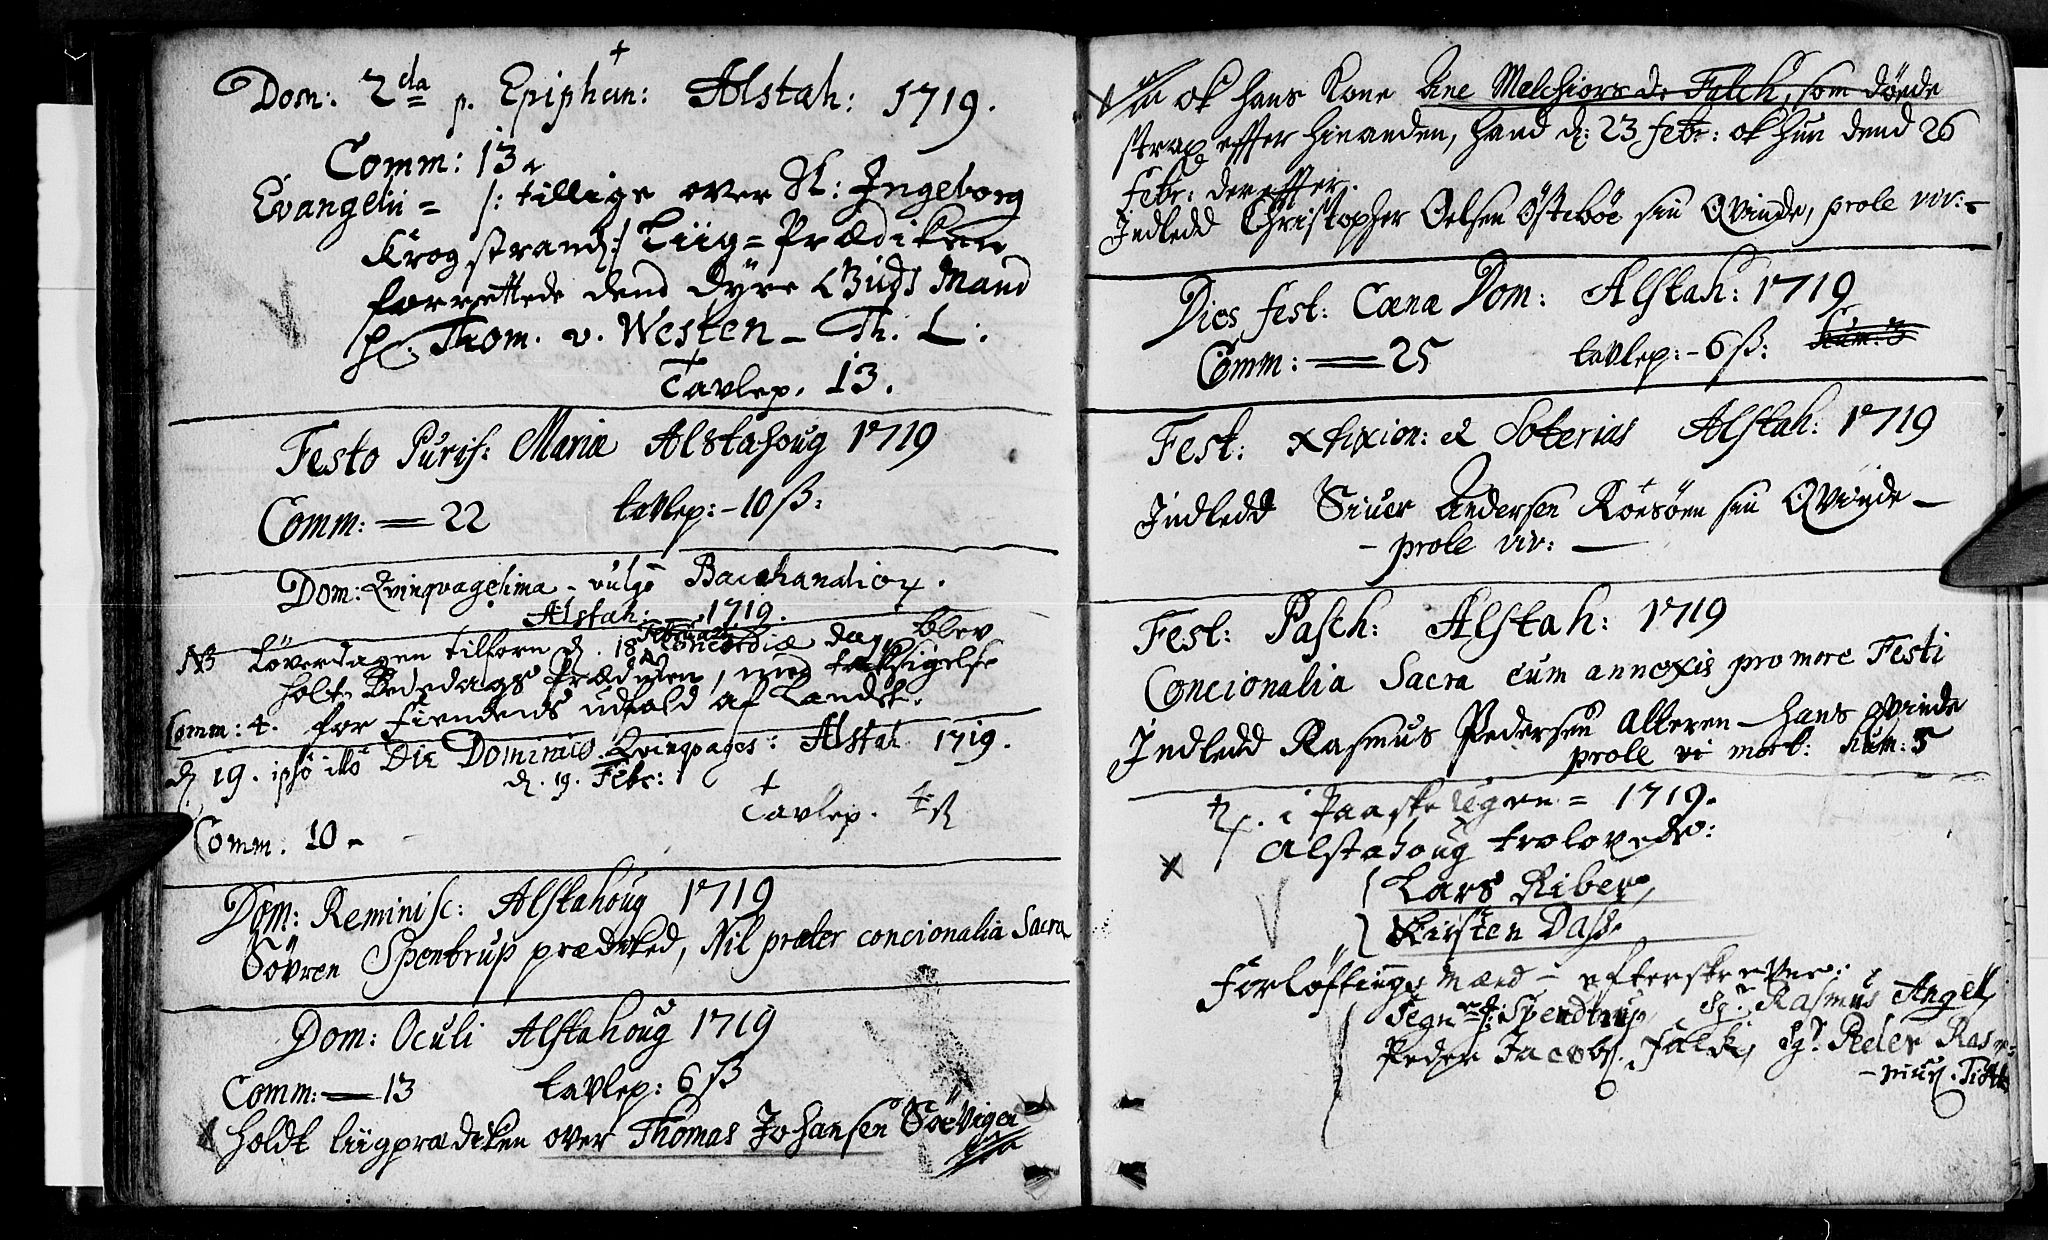 Dom: 2da p. Epiphan: Alstah: 1719.
Comm: 13.
Evangelii = /: tillige over Sl: Ingeborg
Krogstrand :/ Liig=Prædiken
forrettede dend dyre Guds Mand
Hr. Thom. v. Westen - Th. L:
Tavlep. 13.
Festo Purif: Mariæ Alstahoug 1719
Comm: = 22 tavlep: - 10 ß:
Dom: Qvinqvagesima - vulgo Bacchanalior.
Alstah: 1719.
NB Löverdagen tilforn d. 18 Februarii Concordiæ dag, blev
holt Bededags Prædiken, med taksigelse
Comm: 4. for Fiendens udfald af Landet.
d 19. ipso illo Die Dominico Qvinqvages: Alstah 1719.
d. 19. Febr:
Tavlep. 4 ß
Comm. 10 -
Dom: Reminisc: Alstahoug 1719
Sövren Spentrup prædiked, Nil præter concionalia Sacra
Dom: Oculi Alstahoug 1719
Comm: = 13 tavlep: 6 ß
holdt liigprædiken over Thomas Johansen Söevigen
ok hans Kone Ane Melchiors d. Falch, som döede
strax effter hinanden, hand d: 23 febr: ok hun dend 26
Febr: dereffter.
Indledd Christopher Oelsen Östeböe sin Qvinde, prole viv:
Dies fest: Cœnæ Dom: Alstah: 1719
Comm: = 25 tavlep: - 6 ß:
Fest: et Soterias Alstah: 1719
Indledd Siuer Andersen Röesöen sin Qvinde -
- prole viv: -
Fest: Pasch: Alstah: 1719
Concionalia Sacra cum annexis pro more Festi
Indledd Rasmus Pedersen Alteren - hans qvinde
prole vi mort: Num: 5
i Paaske Ugen = 1719.
Alstahoug trolovede:
Lars Riber,
Kirsten Dass.
Forlöftings Mænd - efterskrevne:
Segnr S: Spendtrup, Sgr Rasmus Angell
Peder Jacobs. Falck, Sgr. Peder Ras